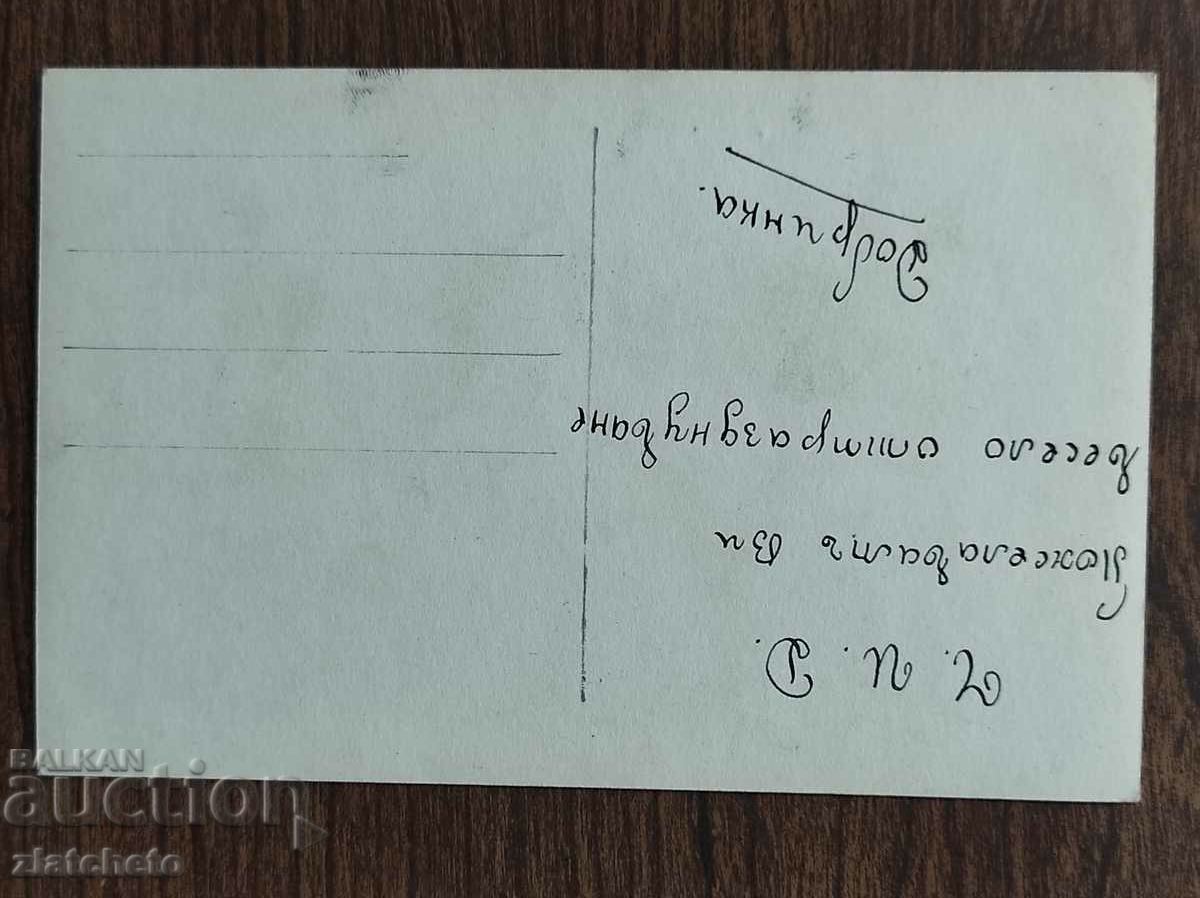 Ч. И. Д.
Пожелаватъ Ви
весело отпразднуване
Добринка.
BALKAN
auction
zlatcheto